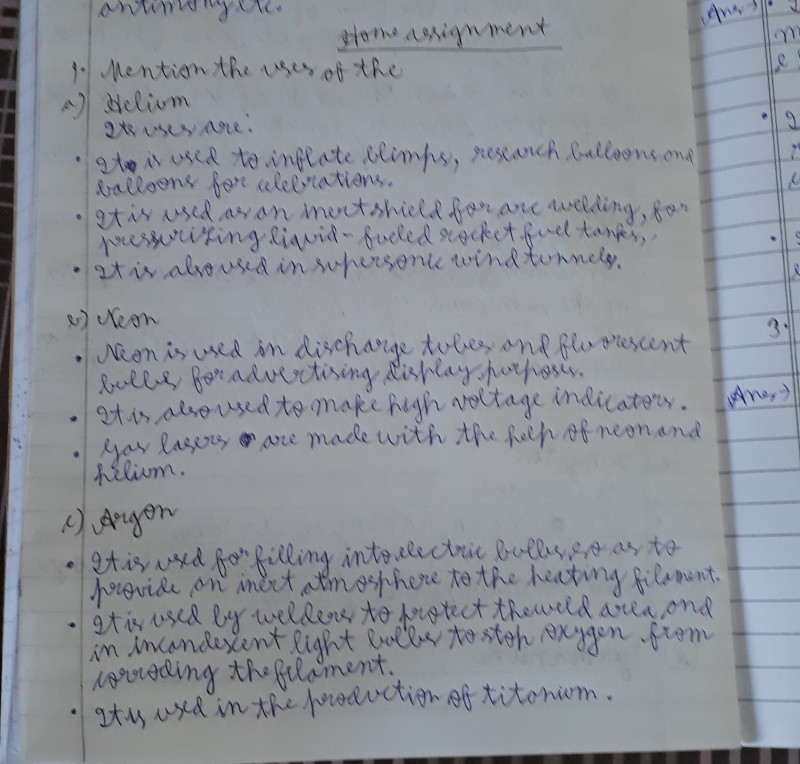 antimony, etc.
Home assignment
1. Mention the uses of the
a) Helium
Its uses are:
• It is used to inflate blimps, research balloons and
balloons for celebrations.
• It is used as an inert shield for arc welding, for
pressurizing liquid-fueled rocket fuel tanks,.
• It is also used in supersonic wind tunnels.
b) Neon
• Neon is used in discharge tubes and fluorescent
bulbs, for advertising display purposes.
• It is also used to make high voltage indicators.
• Gas lasers are made with the help of neon and
helium.
c) Argon
• It is used for filling into electric bulbs, so as to
provide an inert atmosphere to the heating filament.
• It is used by welders to protect the weld area, and
in incandescent light bulbs to stop oxygen from
corroding the filament.
• It is used in the production of titonium.
Ans→
3.
Ans→